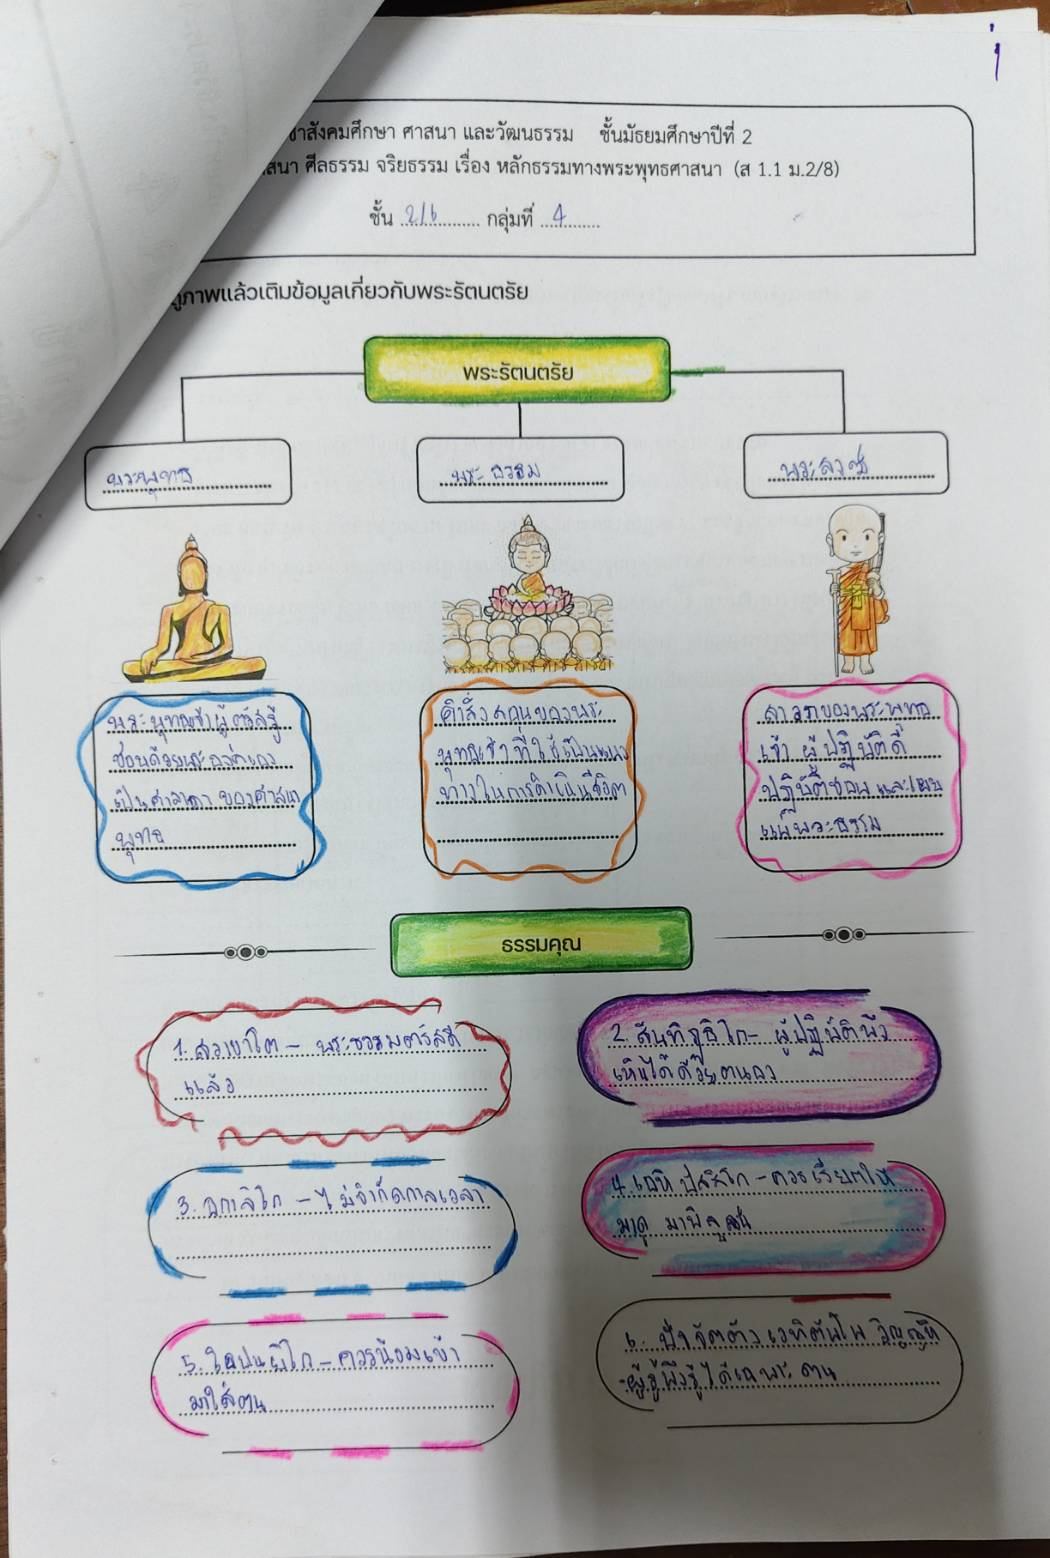 ชาสังคมศึกษา ศาสนา และวัฒนธรรม ชั้นมัธยมศึกษาปีที่ 2
สนา ศีลธรรม จริยธรรม เรื่อง หลักธรรมทางพระพุทธศาสนา (ส 1.1 ม.2/8)
ชั้น 2/6 กลุ่มที่ 4
ดูภาพแล้วเติมข้อมูลเกี่ยวกับพระรัตนตรัย
พระรัตนตรัย
พระพุทธ
พระธรรม
พระสงฆ์
พระพุทธเจ้าผู้ตรัสรู้
ชอบด้วยพระองค์เอง
เป็นศาสดาของศาสนา
พุทธ
คำสั่งสอนของพระ
พุทธเจ้าที่ใช้เป็นแนว
ทางในการดำเนินชีวิต
สาวกของพระพุทธ
เจ้า ผู้ปฏิบัติดี
ปฏิบัติชอบ และเผย
แผ่พระธรรม
ธรรมคุณ
1. สวากขาโต - พระธรรมตรัสดี
แล้ว
2. สันทิฏฐิโก - ผู้ปฏิบัติพึง
เห็นได้ด้วยตนเอง
3. อกาลิโก - ไม่จำกัดกาลเวลา
4. เอหิปัสสิโก - ควรเรียกให้
มาดู มาพิสูจน์
5. โอปนยิโก - ควรน้อมเข้า
มาใส่ตน
6. ปัจจัตตัง เวทิตัพโพ วิญญูหิ
- ผู้รู้พึงรู้ได้เฉพาะตน